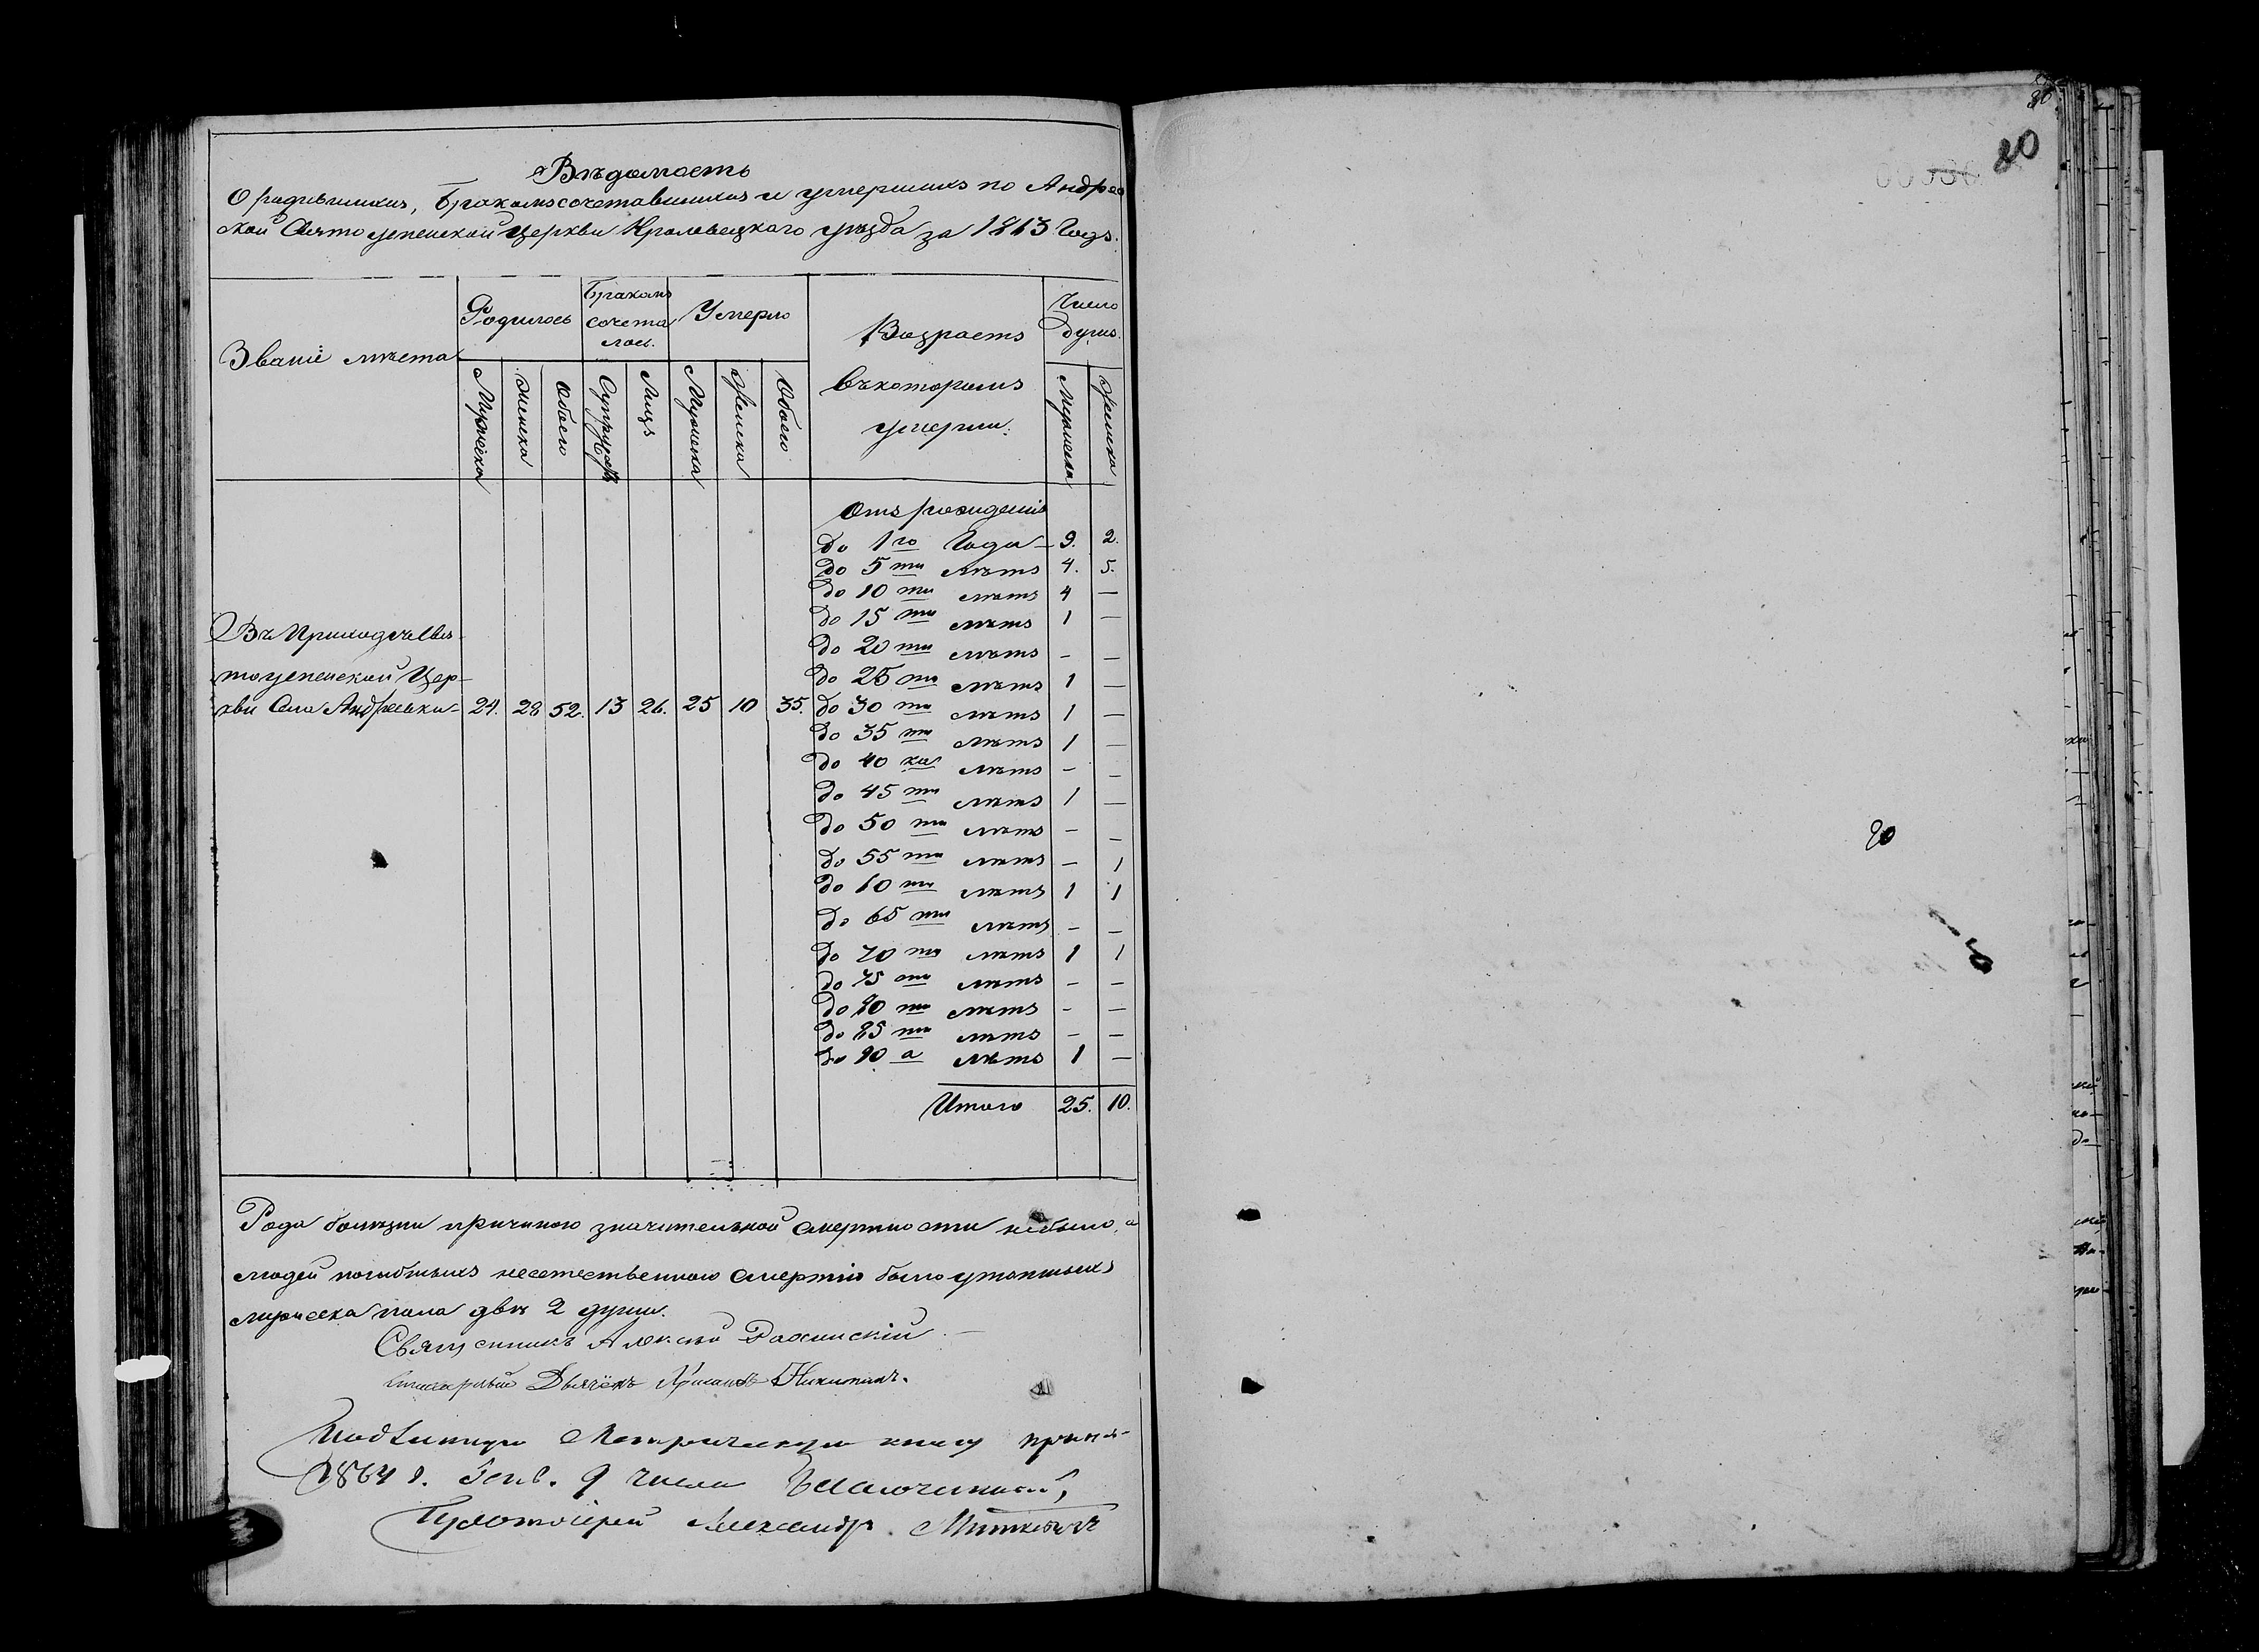 Вѣдомость
О родившихся, Бракомъ сочетавшихся и умершихъ по Андреев
ской Святоуспенской Церкви Кролевецкаго уѣзда за 1863 Годъ.
Званіе мѣста
Родилось
Бракомъ сочета лось.
Умерло
Возрастъ въ которомъ умерли:
Число душъ.
Мужеска
Женска
Обоего
Супружествъ
Лицъ
Мужеска
Женска
Обоего
Мужеска
Женска
Отъ рожденія
до 1го Года 9. 2.
до 5ти лѣтъ 4. 5.
до 10ти лѣтъ 4 —
до 15ти лѣтъ 1 —
до 20ти лѣтъ - —
до 25ти лѣтъ 1 —
Въ Приходѣ Свя-
тоуспенской Цер-
кви Села Андреевки - 24. 28 52. 13 26. 25 10 35.
до 30ти лѣтъ 1 —
до 35ти лѣтъ 1 —
до 40ка лѣтъ - -
до 45ти лѣтъ 1 —
до 50ти лѣтъ - -
до 55ти лѣтъ - 1
до 60ти лѣтъ 1 1
до 65ти лѣтъ - -
до 70ти лѣтъ 1 1
до 75ти лѣтъ - -
до 80ти лѣтъ - —
до 85ти лѣтъ - —
до 90а лѣтъ 1 —
Итого 25. 10.
Рода болѣзни причиною значительной смертности небыло, а
людей погибшихъ неестественною смертію было утопшихъ
мужеска пола двѣ 2 души.
Священникъ Алексѣй
Дьячёкъ
Подлинную Метрическую книгу принялъ
1864 г. Генв. 9 числа Благочинный,
Протоіерей Александръ Миткевичъ
80
80